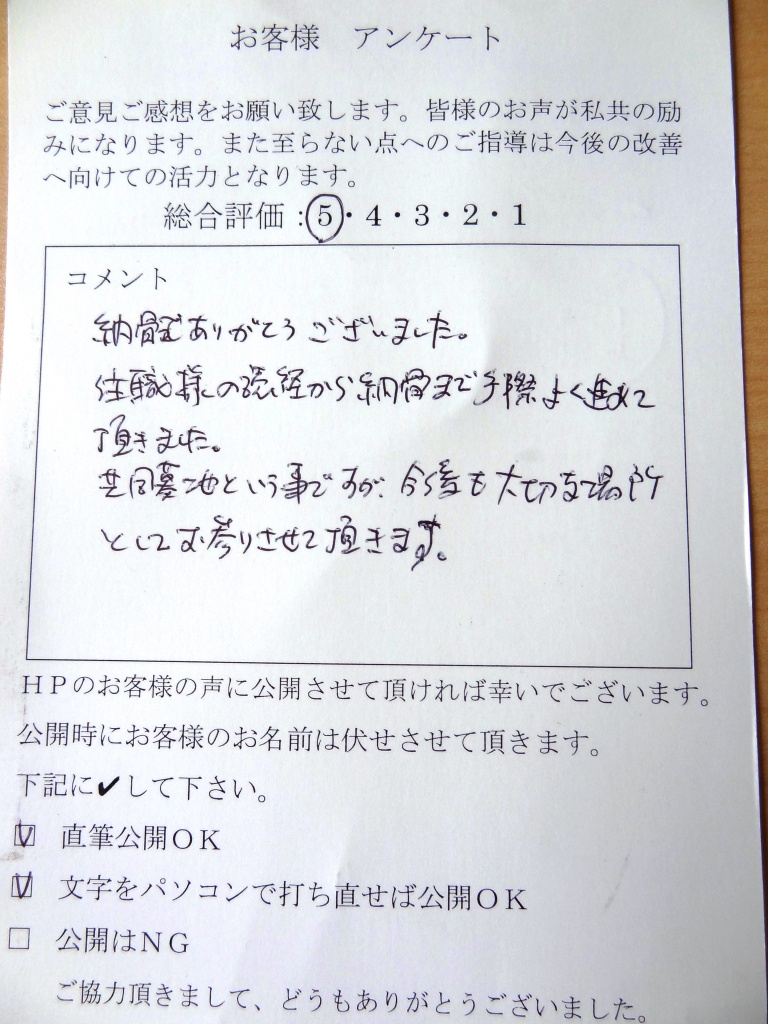 お客様　アンケート
ご意見ご感想をお願い致します。皆様のお声が私共の励
みになります。また至らない点へのご指導は今後の改善
へ向けての活力となります。
総合評価：5・4・3・2・1
コメント
納骨ありがとうございました。
住職様の読経から納骨まで手際よく進めて
頂きました。
共同墓地という事ですが、今後も大切な場所
としてお参りさせて頂きます。
ＨＰのお客様の声に公開させて頂ければ幸いでございます。
公開時にお客様のお名前は伏せさせて頂きます。
下記に✔して下さい。
☑ 直筆公開ＯＫ
☑ 文字をパソコンで打ち直せば公開ＯＫ
□ 公開はＮＧ
ご協力頂きまして、どうもありがとうございました。